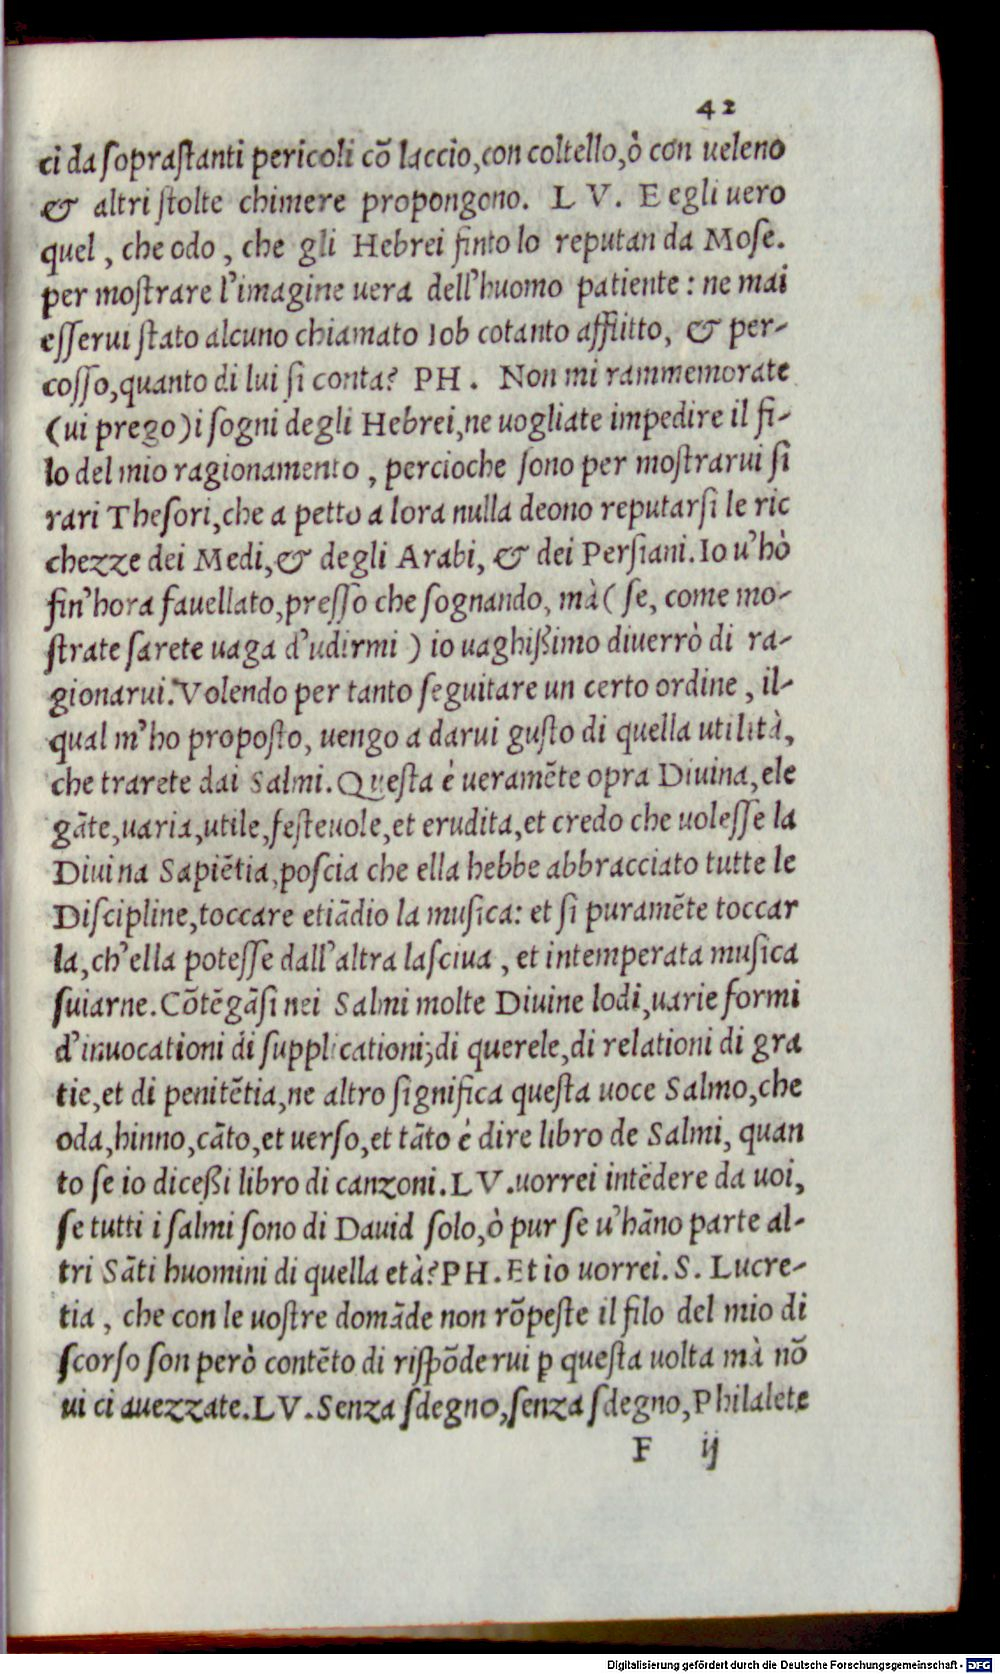 42
ci da ſopraſtanti pericoli cõ laccio,con coltello,ò con ueleno
& altri ſtolte chimere propongono. L V. E egli uero
quel , che odo , che gli Hebrei finto lo reputan da Moſe.
per moſtrare l'imagine uera dell'huomo patiente : ne mai
eſſerui ſtato alcuno chiamato Iob cotanto afflitto, & per-
coſſo,quanto di lui ſi conta? PH . Non mi rammemorate
(ui prego)i ſogni degli Hebrei,ne uogliate impedire il fi-
lo del mio ragionamento , percioche ſono per moſtrarui ſi
rari Theſori,che a petto a lora nulla deono reputarſi le ric
chezze dei Medi,& degli Arabi, & dei Perſiani.Io u'hò
fin'hora fauellato,preſſo che ſognando, mà ( ſe, come mo-
ſtrate ſarete uaga d'udirmi ) io uaghißimo diuerrò di ra-
gionarui.Volendo per tanto ſeguitare un certo ordine , il-
qual m'ho propoſto, uengo a darui guſto di quella utilità,
che trarete dai Salmi.Queſta è ueramẽte opra Diuina,ele
gãte,uaria,utile,feſteuole,et erudita,et credo che uoleſſe la
Diuina Sapiẽtia,poſcia che ella hebbe abbracciato tutte le
Diſcipline,toccare etiãdio la muſica: et ſi puramẽte toccar
la,ch'ella poteſſe dall'altra laſciua , et intemperata muſica
ſuiarne.Cõtẽgãſi nei Salmi molte Diuine lodi,uarie formi
d'inuocationi di ſupplicationi;di querele,di relationi di gra
tie,et di penitẽtia,ne altro ſignifica queſta uoce Salmo,che
oda,hinno,cãto,et uerſo,et tãto é dire libro de Salmi, quan
to ſe io diceßi libro di canzoni.L V.uorrei intẽdere da uoi,
ſe tutti i ſalmi ſono di Dauid ſolo,ò pur ſe u'hãno parte al-
tri Sãti huomini di quella età?PH.Et io uorrei.S. Lucre-
tia , che con le uoſtre domãde non rõpeſte il filo del mio di
ſcorſo ſon però contẽto di riſpõderui p queſta uolta mà nõ
ui ci auezzate.L V.Senza ſdegno,ſenza ſdegno,Philalete
F ij
Digitalisierung gefördert durch die Deutsche Forschungsgemeinschaft - DFG